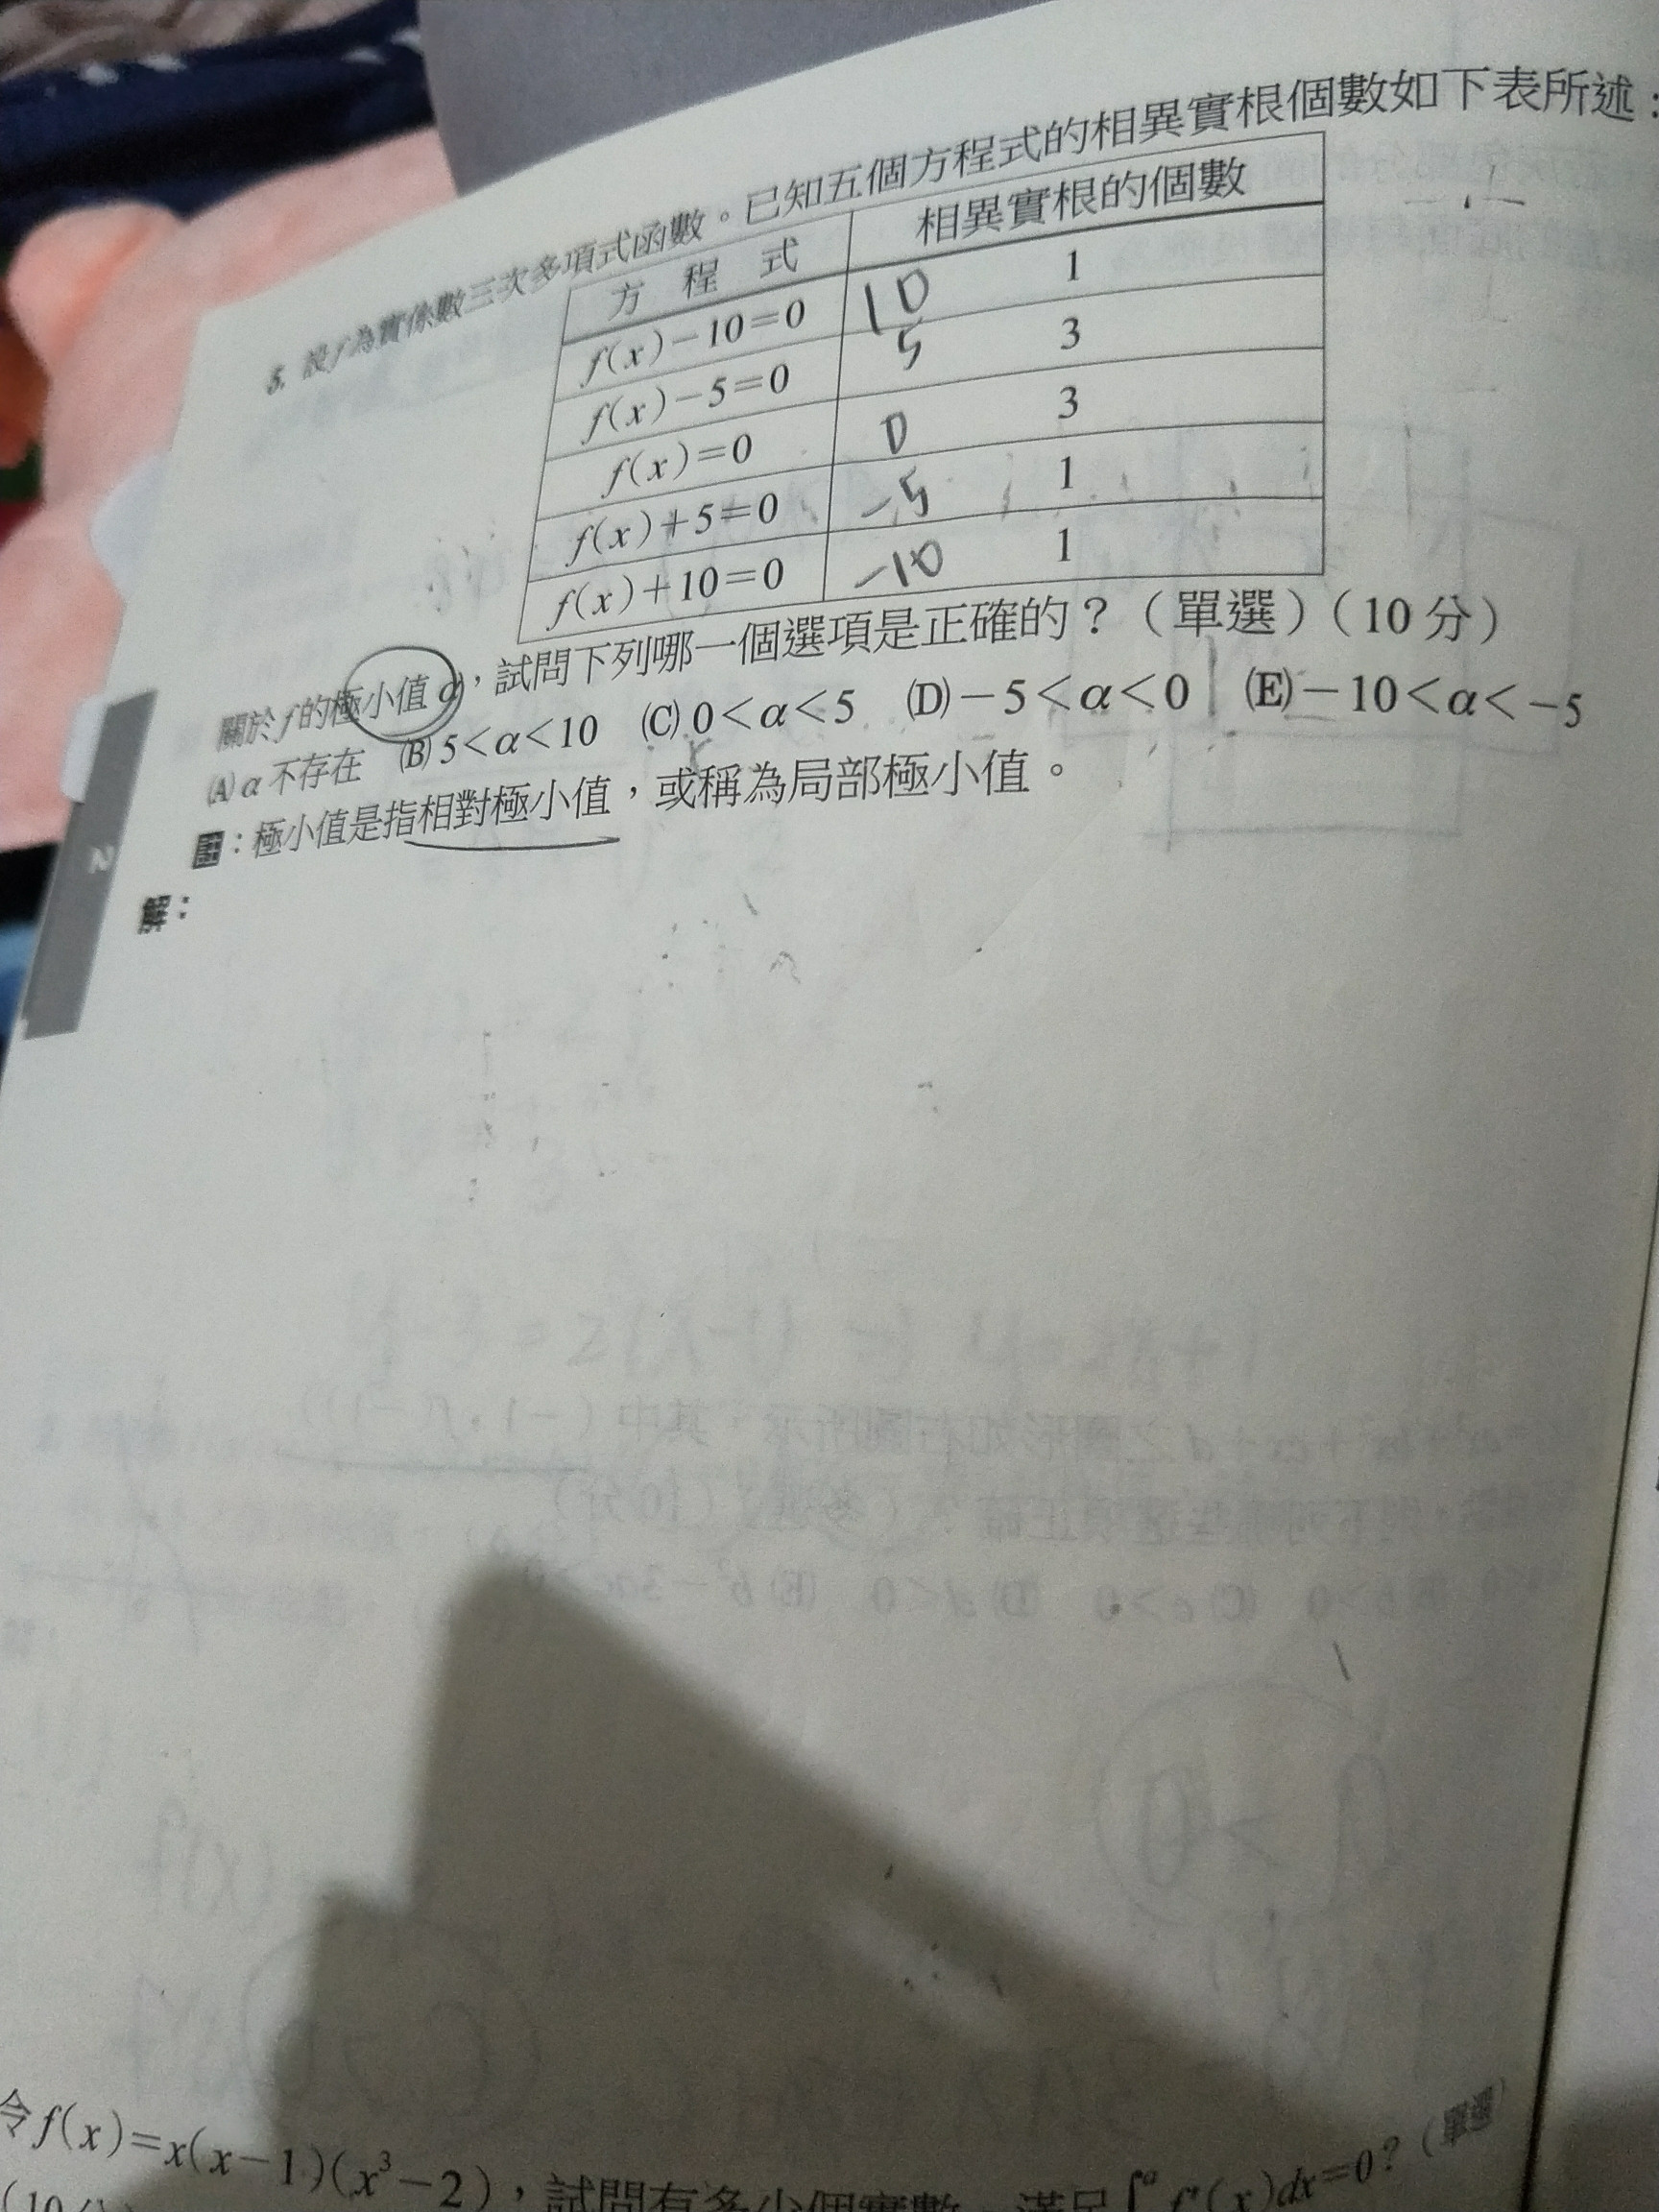 5. 設 f 為實係數三次多項式函數。已知五個方程式的相異實根個數如下表所述：
方 程 式 相異實根的個數
f(x)－10＝0 10 1
f(x)－5＝0 5 3
f(x)＝0 0 3
f(x)＋5＝0 －5 1
f(x)＋10＝0 －10 1
關於 f 的極小值 α，試問下列哪一個選項是正確的？（單選）（10 分）
(A) α 不存在 (B) 5＜α＜10 (C) 0＜α＜5 (D)－5＜α＜0 (E)－10＜α＜－5
註：極小值是指相對極小值，或稱為局部極小值。
解：
2
令 f(x)＝x(x－1)(x³－2)，試問有多少個實數 滿足∫ᵃ f'(x)dx＝0？（單選）
(10